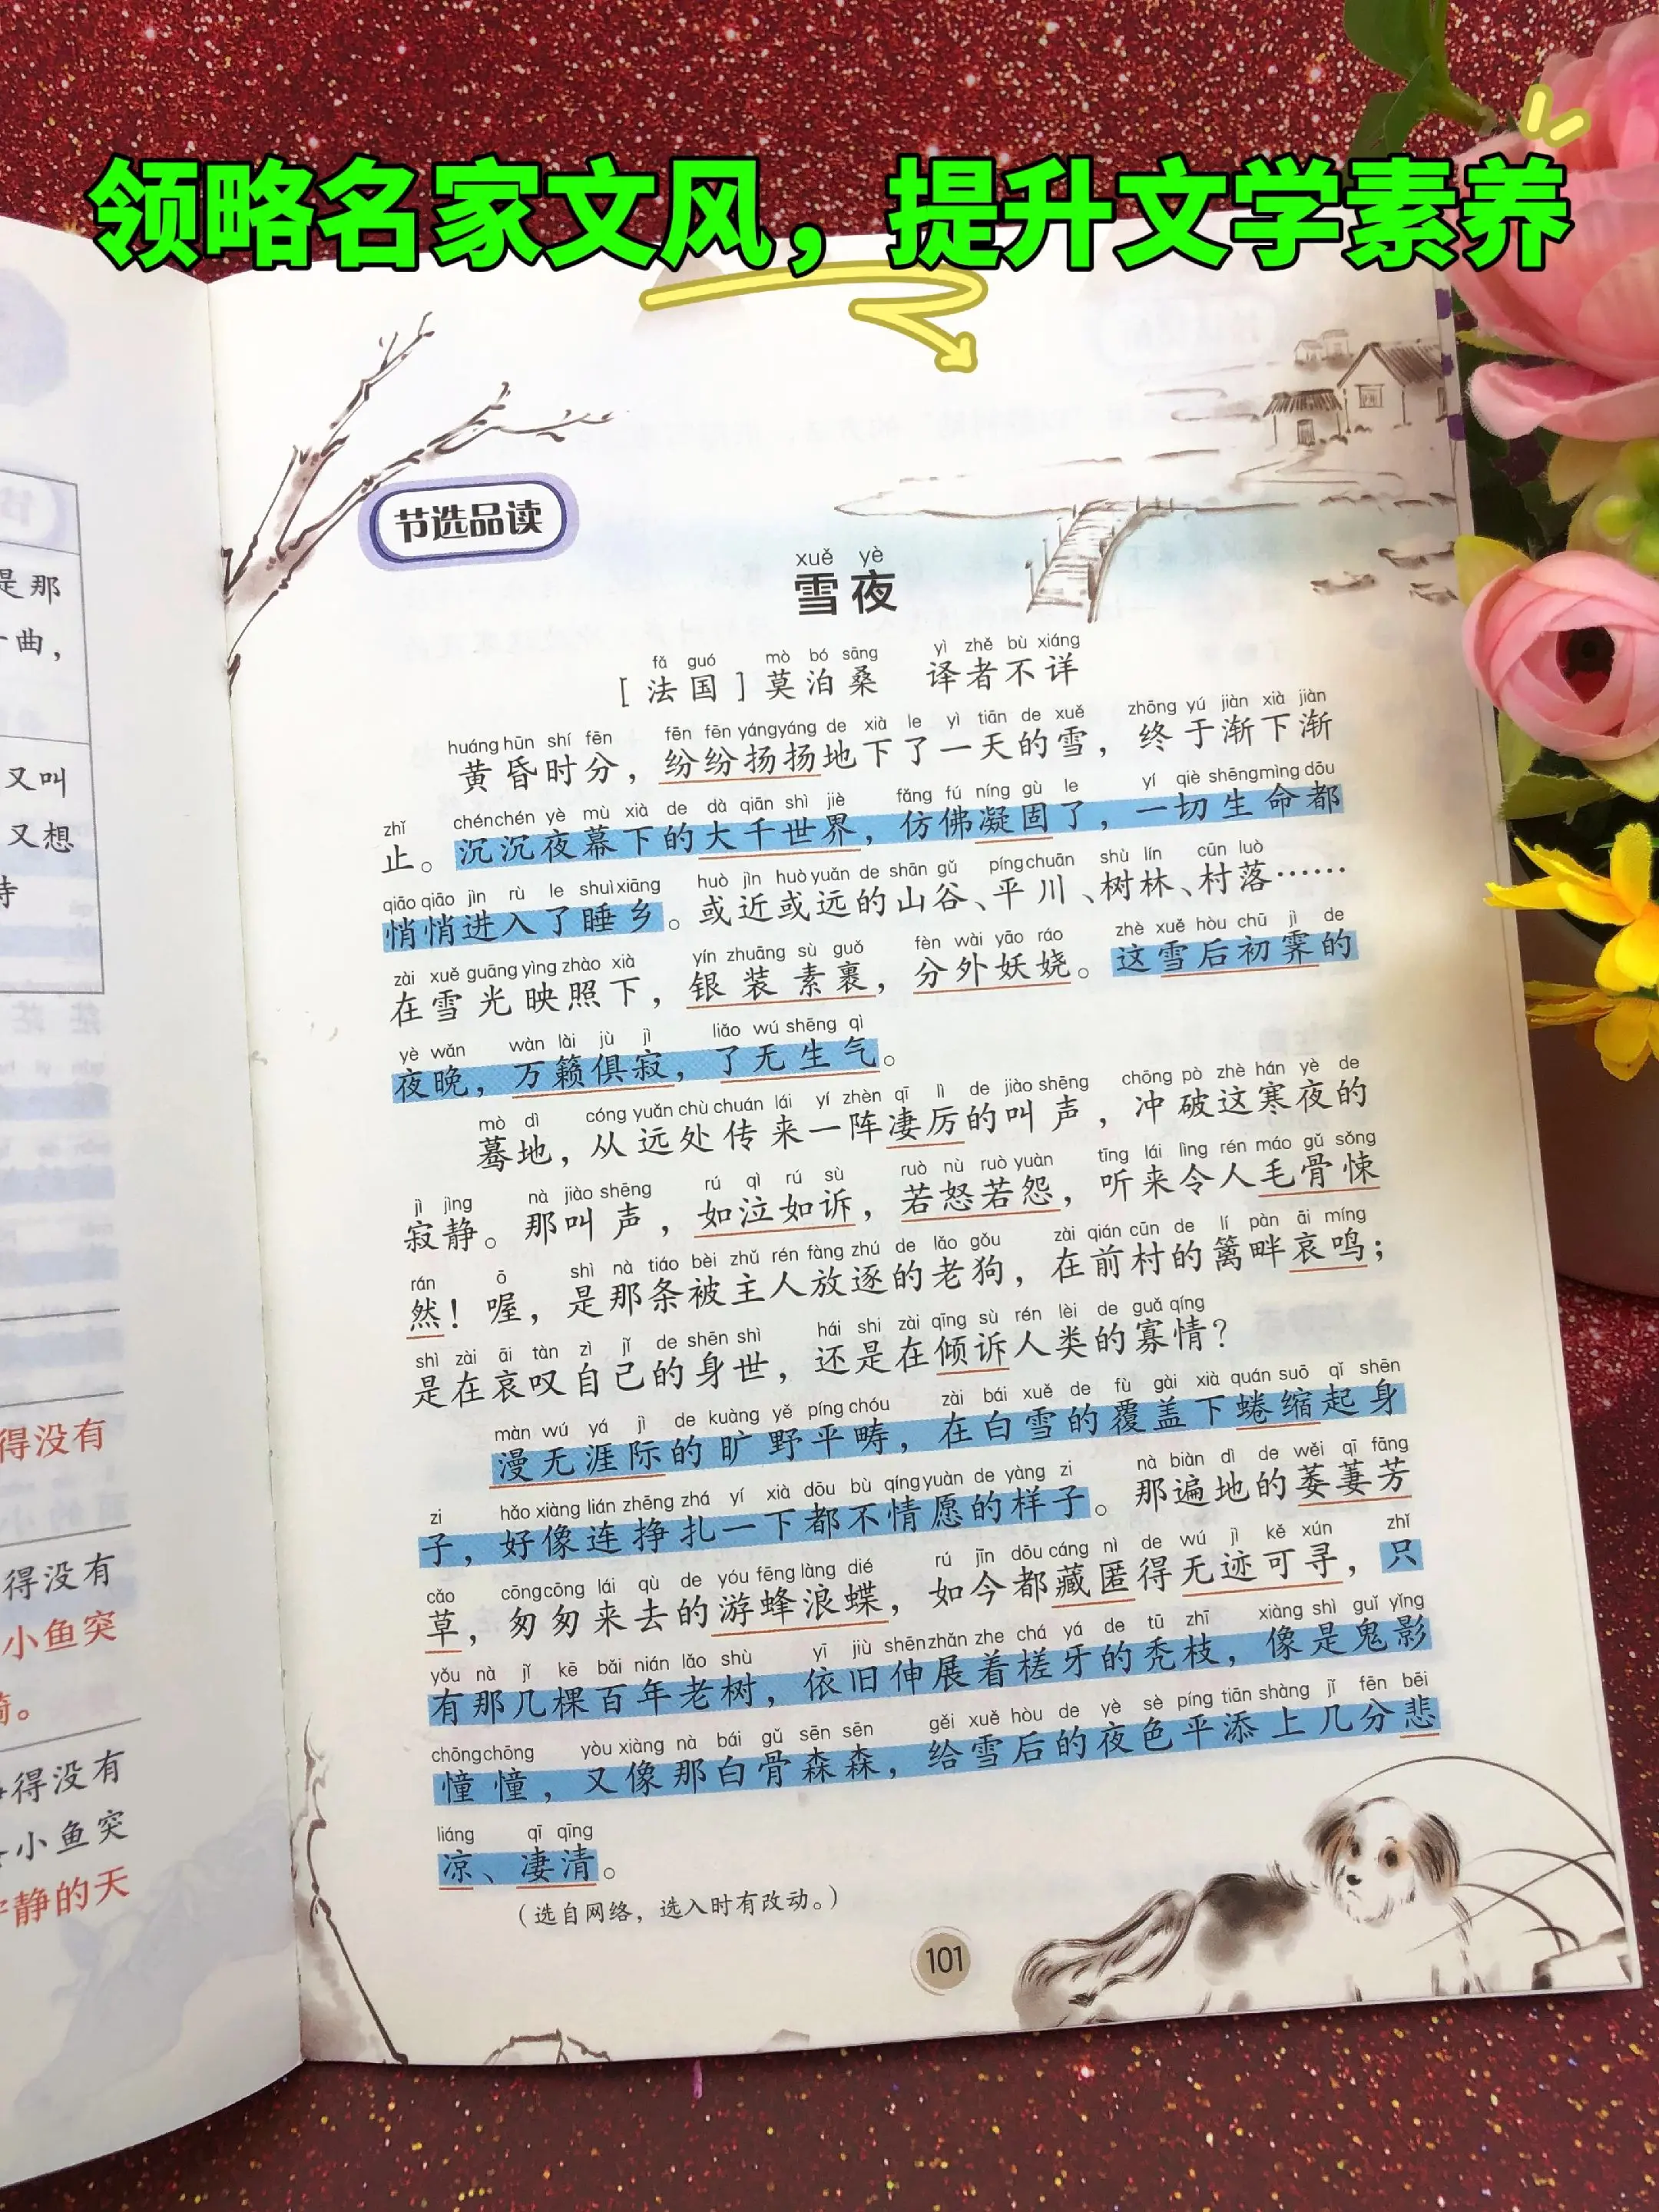 领略名家文风，提升文学素养
节选品读
xuě yè
雪夜
fǎ guó mò bó sāng yì zhě bù xiáng
［法国］莫泊桑 译者不详
huáng hūn shí fēn fēn fēn yáng yáng de xià le yì tiān de xuě zhōng yú jiàn xià jiàn
黄昏时分，纷纷扬扬地下了一天的雪，终于渐下渐
zhǐ chén chén yè mù xià de dà qiān shì jiè fǎng fú níng gù le yí qiè shēng mìng dōu
止。沉沉夜幕下的大千世界，仿佛凝固了，一切生命都
qiāo qiāo jìn rù le shuì xiāng huò jìn huò yuǎn de shān gǔ píng chuān shù lín cūn luò
悄悄进入了睡乡。或近或远的山谷、平川、树林、村落……
zài xuě guāng yìng zhào xià yín zhuāng sù guǒ fèn wài yāo ráo zhè xuě hòu chū jì de
在雪光映照下，银装素裹，分外妖娆。这雪后初霁的
yè wǎn wàn lài jù jì liǎo wú shēng qì
夜晚，万籁俱寂，了无生气。
mò dì cóng yuǎn chù chuán lái yí zhèn qī lì de jiào shēng chōng pò zhè hán yè de
蓦地，从远处传来一阵凄厉的叫声，冲破这寒夜的
jì jìng nà jiào shēng rú qì rú sù ruò nù ruò yuàn tīng lái lìng rén máo gǔ sǒng
寂静。那叫声，如泣如诉，若怒若怨，听来令人毛骨悚
rán ō shì nà tiáo bèi zhǔ rén fàng zhú de lǎo gǒu zài qián cūn de lí pàn āi míng
然！喔，是那条被主人放逐的老狗，在前村的篱畔哀鸣；
shì zài āi tàn zì jǐ de shēn shì hái shi zài qīng sù rén lèi de guǎ qíng
是在哀叹自己的身世，还是在倾诉人类的寡情？
màn wú yá jì de kuàng yě píng chóu zài bái xuě de fù gài xià quán suō qǐ shēn
漫无涯际的旷野平畴，在白雪的覆盖下蜷缩起身
zi hǎo xiàng lián zhēng zhá yí xià dōu bù qíng yuàn de yàng zi nà biàn dì de wěi qī fāng
子，好像连挣扎一下都不情愿的样子。那遍地的萎萋芳
cǎo cōng cōng lái qù de yóu fēng làng dié rú jīn dōu cáng nì de wú jì kě xún zhǐ
草，匆匆来去的游蜂浪蝶，如今都藏匿得无迹可寻，只
yǒu nà jǐ kē bǎi nián lǎo shù yī jiù shēn zhǎn zhe chá yá de tū zhī xiàng shì guǐ yǐng
有那几棵百年老树，依旧伸展着槎牙的秃枝，像是鬼影
chōng chōng yòu xiàng nà bái gǔ sēn sēn gěi xuě hòu de yè sè píng tiān shàng jǐ fēn bēi
憧憧，又像那白骨森森，给雪后的夜色平添上几分悲
liáng qī qīng
凉、凄清。
（选自网络，选入时有改动。）
101
是那
曲，
又叫
又想
得没有
得没有
小鱼突
得没有
小鱼突
静的天